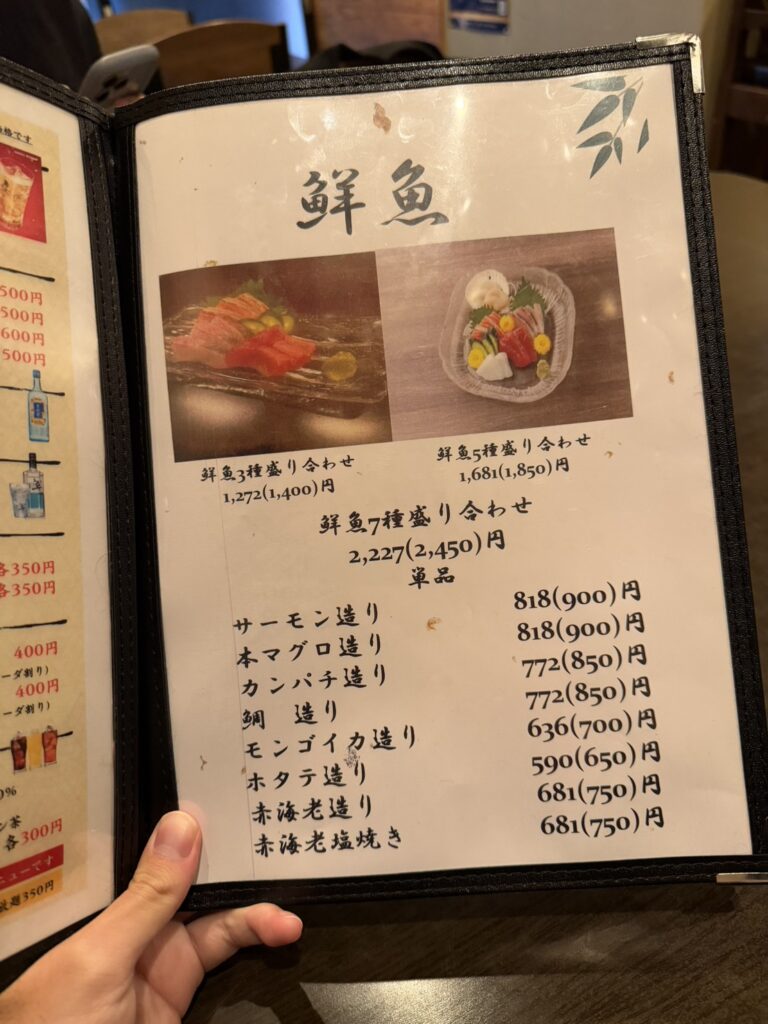 格です
500円
500円
600円
500円
各350円
各350円
400円
ーダ割り)
400円
ーダ割り)
0%
ン茶
各300円
ニューです
放題350円
鮮魚
鮮魚3種盛り合わせ
1,272(1,400)円
鮮魚5種盛り合わせ
1,681(1,850)円
鮮魚7種盛り合わせ
2,227(2,450)円
単品
サーモン造り 818(900)円
本マグロ造り 818(900)円
カンパチ造り 772(850)円
鯛 造り 772(850)円
モンゴイカ造り 636(700)円
ホタテ造り 590(650)円
赤海老造り 681(750)円
赤海老塩焼き 681(750)円